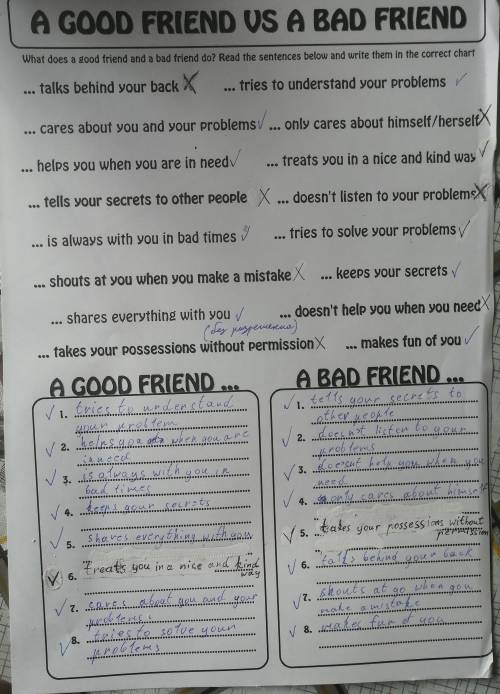 A GOOD FRIEND VS A BAD FRIEND
What does a good friend and a bad friend do? Read the sentences below and write them in the correct chart
... talks behind your back X ... tries to understand your problems ✓
... cares about you and your problems ✓ ... only cares about himself/herself X
... helps you when you are in need ✓ ... treats you in a nice and kind way ✓
... tells your secrets to other people X ... doesn't listen to your problems X
... is always with you in bad times ✓ ... tries to solve your problems ✓
... shouts at you when you make a mistake X ... keeps your secrets ✓
... shares everything with you ✓ ... doesn't help you when you need X
(без разрешения)
... takes your possessions without permission X ... makes fun of you ✓
A GOOD FRIEND ...
✓ 1. tries to understand
your problem
✓ 2. helps you when you are
in need
✓ 3. is always with you in
bad times
✓ 4. keeps your secrets
✓ 5. shares everything with you
✓ 6. treats you in a nice and kind
way
✓ 7. cares about you and your
problems
✓ 8. tries to solve your
problems
A BAD FRIEND ...
✓ 1. tells your secrets to
other people
✓ 2. doesn't listen to your
problems
✓ 3. doesnt help you when you
need
✓ 4. only cares about himself
✓ 5. takes your possessions without
permission
✓ 6. talks behind your back
✓ 7. shouts at go when you
make a mistake
✓ 8. makes fun of you